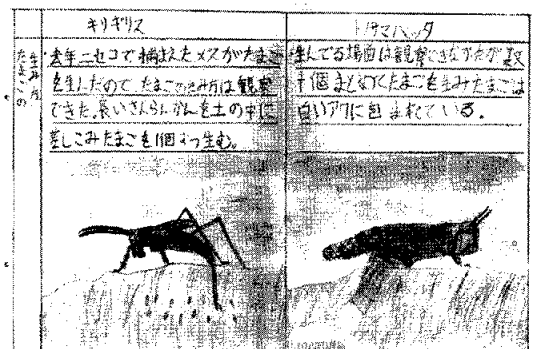 キリギリス
トノサマバッタ
たまごの
生み方
去年ニセコで捕まえたメスがたまご
を生んだので たまごの生み方は観察
できた。長いさんらんかんを土の中に
差しこみたまごを1個ずつ生む。
生んでる場面は観察できなかたが数
十個まとまってたまごを生みたまごは
白いアワに包まれている。